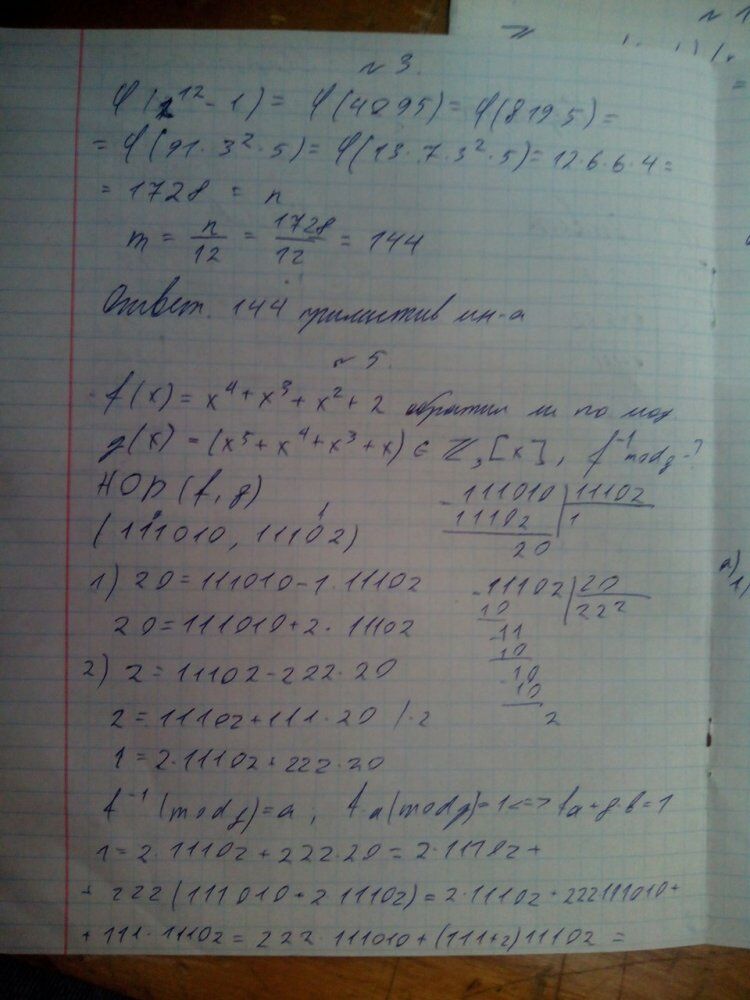 № 3.
φ(2^12 - 1) = φ(4095) = φ(819·5) =
= φ(91·3^2·5) = φ(13·7·3^2·5) = 12·6·6·4 =
= 1728 = n
m = n/12 = 1728/12 = 144
Ответ. 144 примитив мн-а
№ 5.
f(x) = x^4 + x^3 + x^2 + 2 обратим ли по мод.
g(x) = (x^5 + x^4 + x^3 + x) ∈ ℤ_3[x], f^-1 mod g - ?
НОД(f, g)
(111010, 11102)
111010 | 11102
11102 | 1
20
1) 20 = 111010 - 1·11102
20 = 111010 + 2·11102
11102 | 20
10 | 222
11
10
10
10
2
2) 2 = 11102 - 222·20
2 = 11102 + 111·20 /·2
1 = 2·11102 + 222·20
f^-1 (mod g) = a; f·a (mod g) = 1 <=> fa + g·b = 1
1 = 2·11102 + 222·20 = 2·11102 +
+ 222(111010 + 2·11102) = 2·11102 + 222·111010 +
+ 111·11102 = 222·111010 + (111+2)11102 =